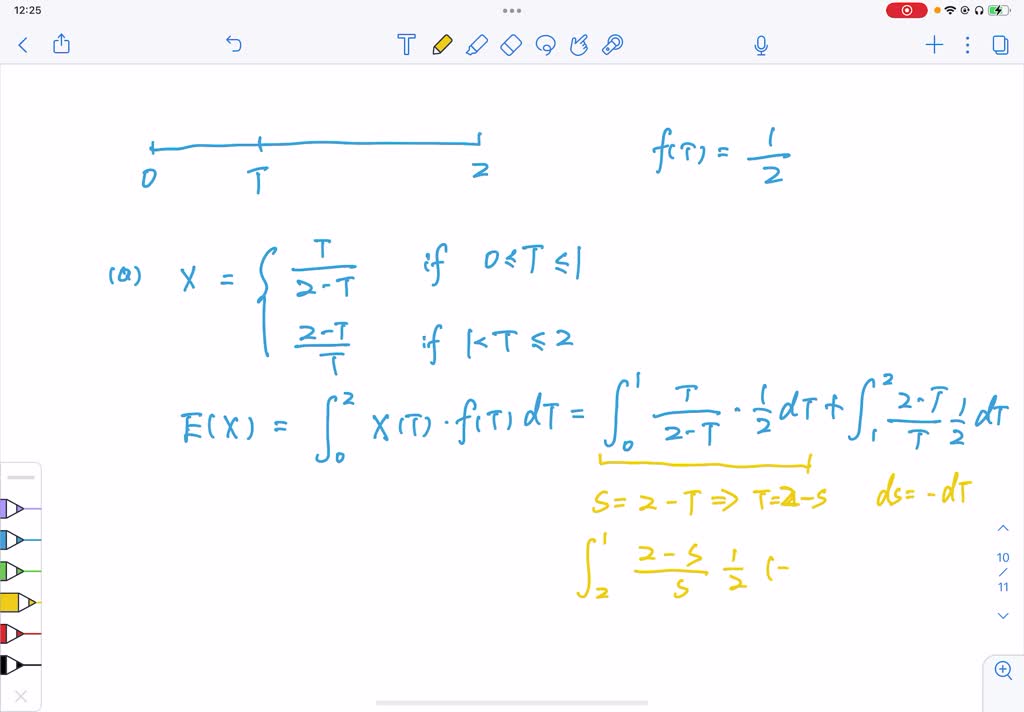 12:25
0 T 2
f(T) = 1/2
(a) X = { T/(2-T) if 0≤T≤1
(2-T)/T if 1<T≤2
E(X) = ∫₀² X(T)·f(T) dT = ∫₀¹ T/(2-T) · 1/2 dT + ∫₁² (2-T)/T 1/2 dT
S = 2-T ⇒ T=2-S ds = -dT
∫₂¹ (2-S)/S 1/2 (-
10
/
11